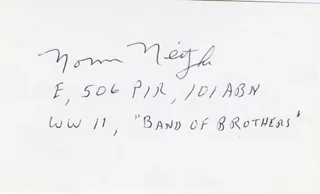 Norm Neitzke
E, 506 PIR, 101 ABN
WW 11, "BAND OF BROTHERS'